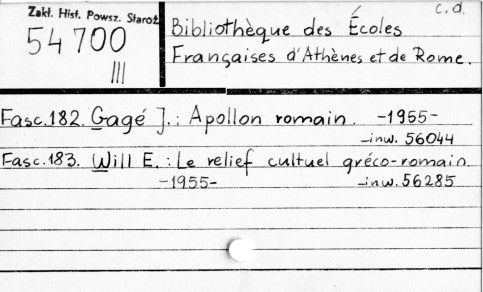 c.d.
Zakł. Hist. Powsz. Staroż.
54 700
III
Bibliothèque des Écoles
Françaises d'Athènes et de Rome.
Fasc.182. Gagé J.: Apollon romain. -1955-
-inw. 56044
Fasc.183. Will E.: Le relief cultuel gréco-romain.
-1955- -inw. 56285